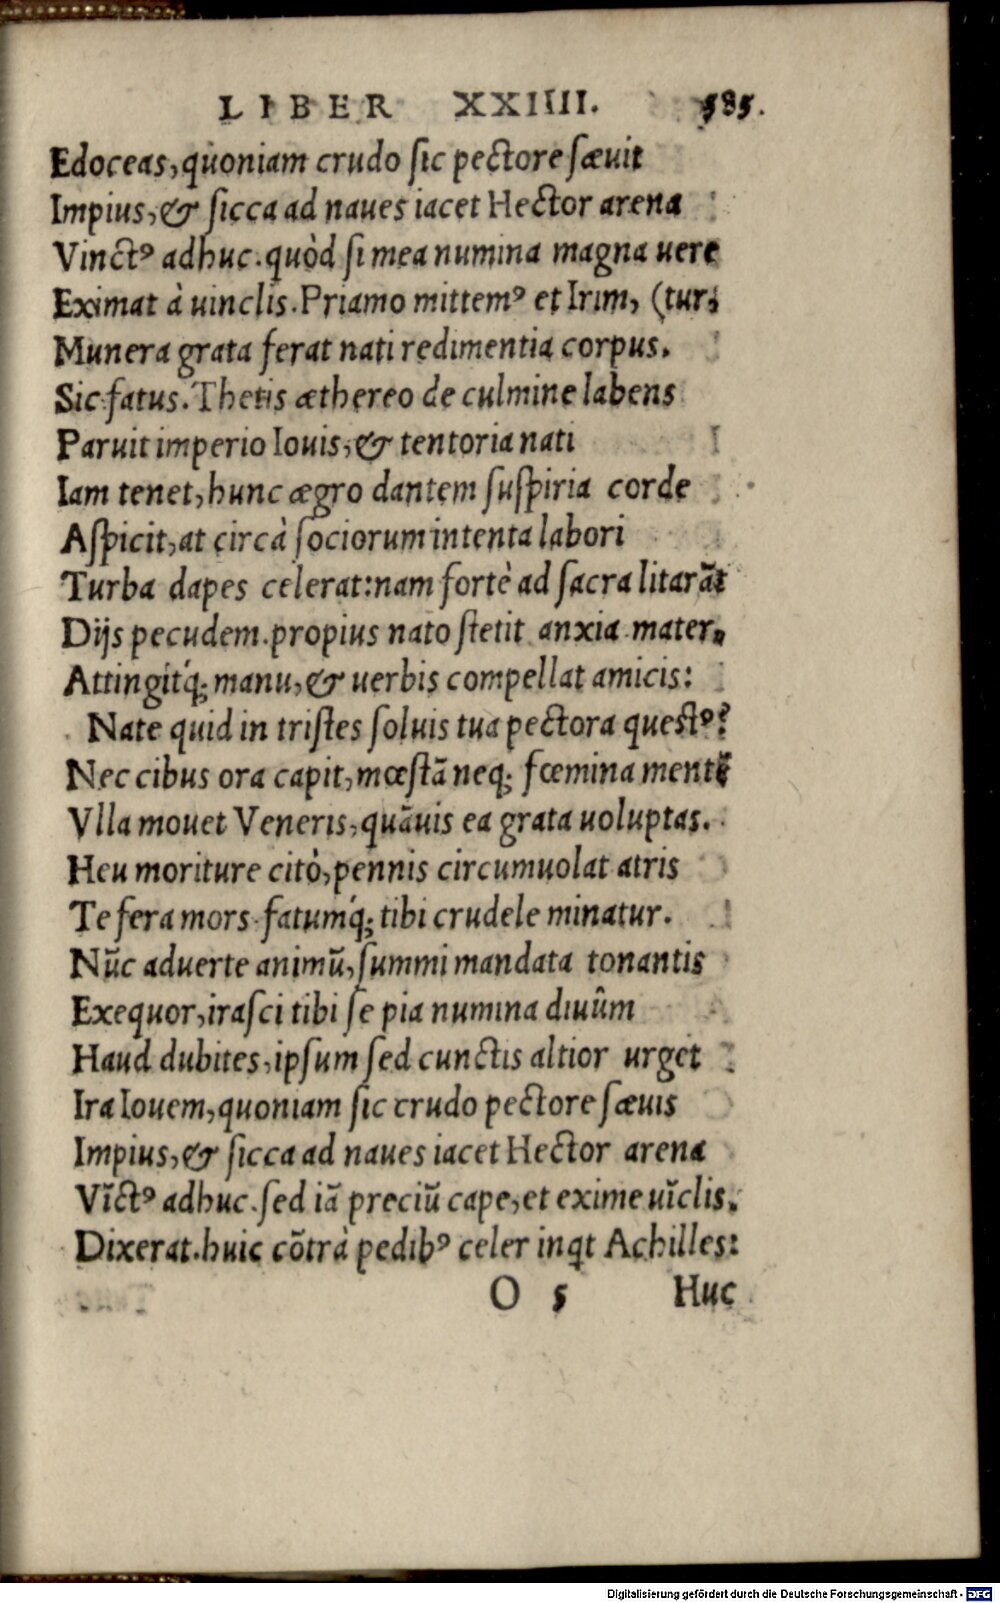 LIBER XXIIII. 585.
Edoceas, quoniam crudo sic pectore sæuit
Impius, & sicca ad naues iacet Hector arena
Vinctꝰ adhuc. quòd si mea numina magna uere
Eximat à uinclis. Priamo mittemꝰ et Irim, (tur,
Munera grata ferat nati redimentia corpus.
Sic fatus. Thetis æthereo de culmine labens
Paruit imperio Iouis, & tentoria nati
Iam tenet, hunc ægro dantem suspiria corde
Aspicit, at circà sociorum intenta labori
Turba dapes celerat: nam fortè ad sacra litarāt
Dijs pecudem. propius nato stetit anxia mater,
Attingitq́; manu, & uerbis compellat amicis:
Nate quid in tristes soluis tua pectora questꝰ?
Nec cibus ora capit, mœstā neq; fœmina mentē
Vlla mouet Veneris, quāuis ea grata uoluptas.
Heu moriture citò, pennis circumuolat atris
Te fera mors fatumq́; tibi crudele minatur.
Nūc aduerte animū, summi mandata tonantis
Exequor, irasci tibi se pia numina diuûm
Haud dubites, ipsum sed cunctis altior urget
Ira Iouem, quoniam sic crudo pectore sæuis
Impius, & sicca ad naues iacet Hector arena
Vīctꝰ adhuc. sed iā preciū cape, et exime uīclis.
Dixerat. huic cōtrà pedibꝰ celer inqt Achilles:
O 5 Huc
Digitalisierung gefördert durch die Deutsche Forschungsgemeinschaft - DFG